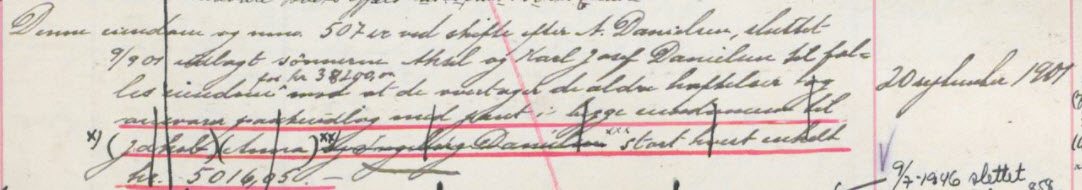 Denne eiendom og mno. 507 er ved skifte efter A. Danielsen, sluttet
9/9 01 utlagt sønnerne Aksel og Karl Josef Danielsen til fæl-
for kr 38200,00
les eiendom mod at de overtager de ældre heftelser og
utlæg med pant i begge eiendomme til
x) (Jakob) (Anna) xx) og Ingeborg Danielsen xxx stort hvert enkelt
kr. 5016,05. —
20 september 1901
9/7-1946 slettet
858